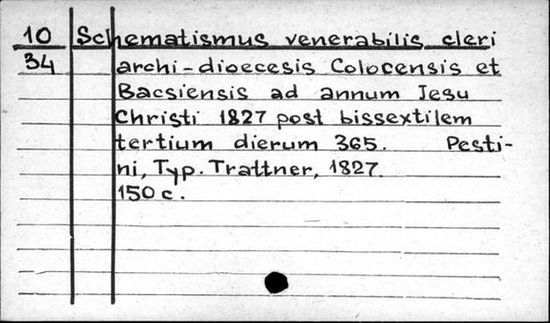 10 Schematismus venerabilis cleri
34 archi-dioecesis Colocensis et
Bacsiensis ad annum Jesu
Christi 1827 post bissextilem
tertium dierum 365. Pesti-
ni, Typ. Trattner, 1827.
150 c.